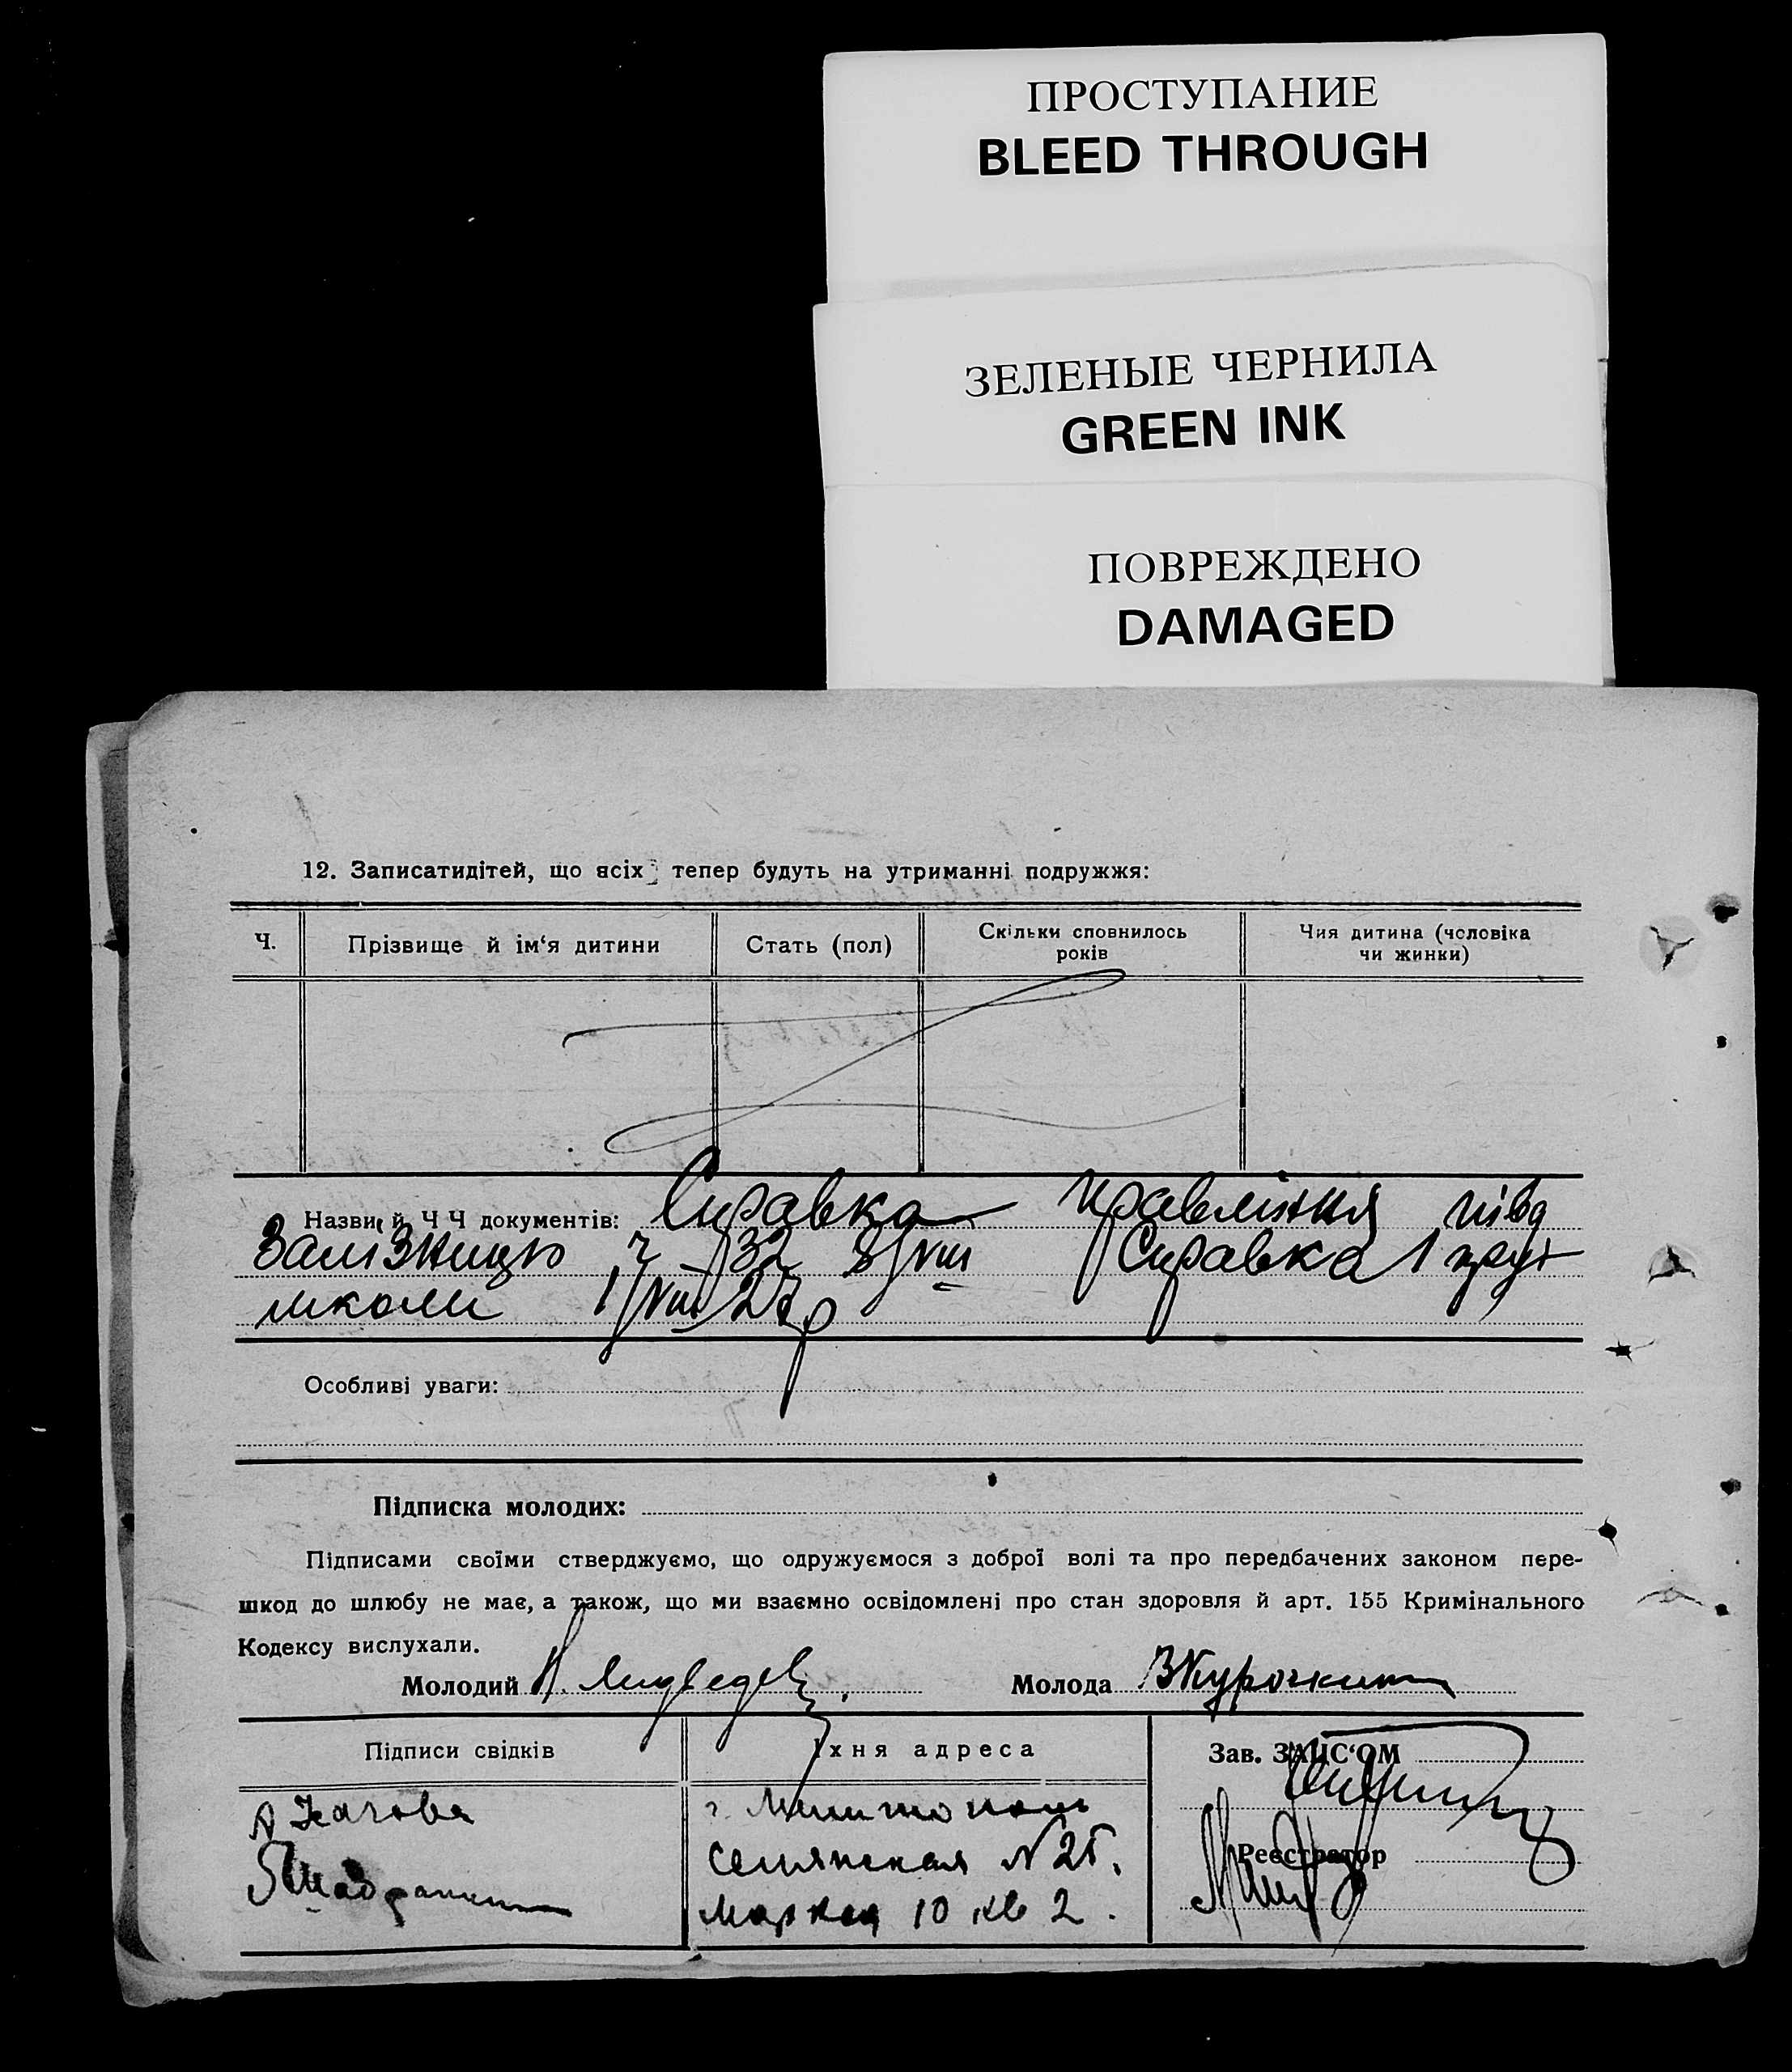 ПРОСТУПАНИЕ
BLEED THROUGH
ЗЕЛЕНЫЕ ЧЕРНИЛА
GREEN INK
ПОВРЕЖДЕНО
DAMAGED
12. Записатидітей, що всіх тепер будуть на утриманні подружжя:
Ч.
Прізвище й ім‘я дитини
Стать (пол)
Скільки сповнилось
років
Чия дитина (чоловіка
чи жинки)
Назви й Ч Ч документів: Справка правління півд
Залізниць ч 732 8/VIII Справка 1 труд
школи 1/VIII 27 р
Особливі уваги:
Підписка молодих:
Підписами своїми стверджуємо, що одружуємося з доброї волі та про передбачених законом пере-
шкод до шлюбу не має, а також, що ми взаємно освідомлені про стан здоровля й арт. 155 Кримінального
Кодексу вислухали.
Молодий Медведев
Молода ВКурочкина
Підписи свідків
Їхня адреса
Зав. ЗАГС‘ОМ
г. Мелитополь
N 25.
Реєстратор
Маркса 10 кв 2.